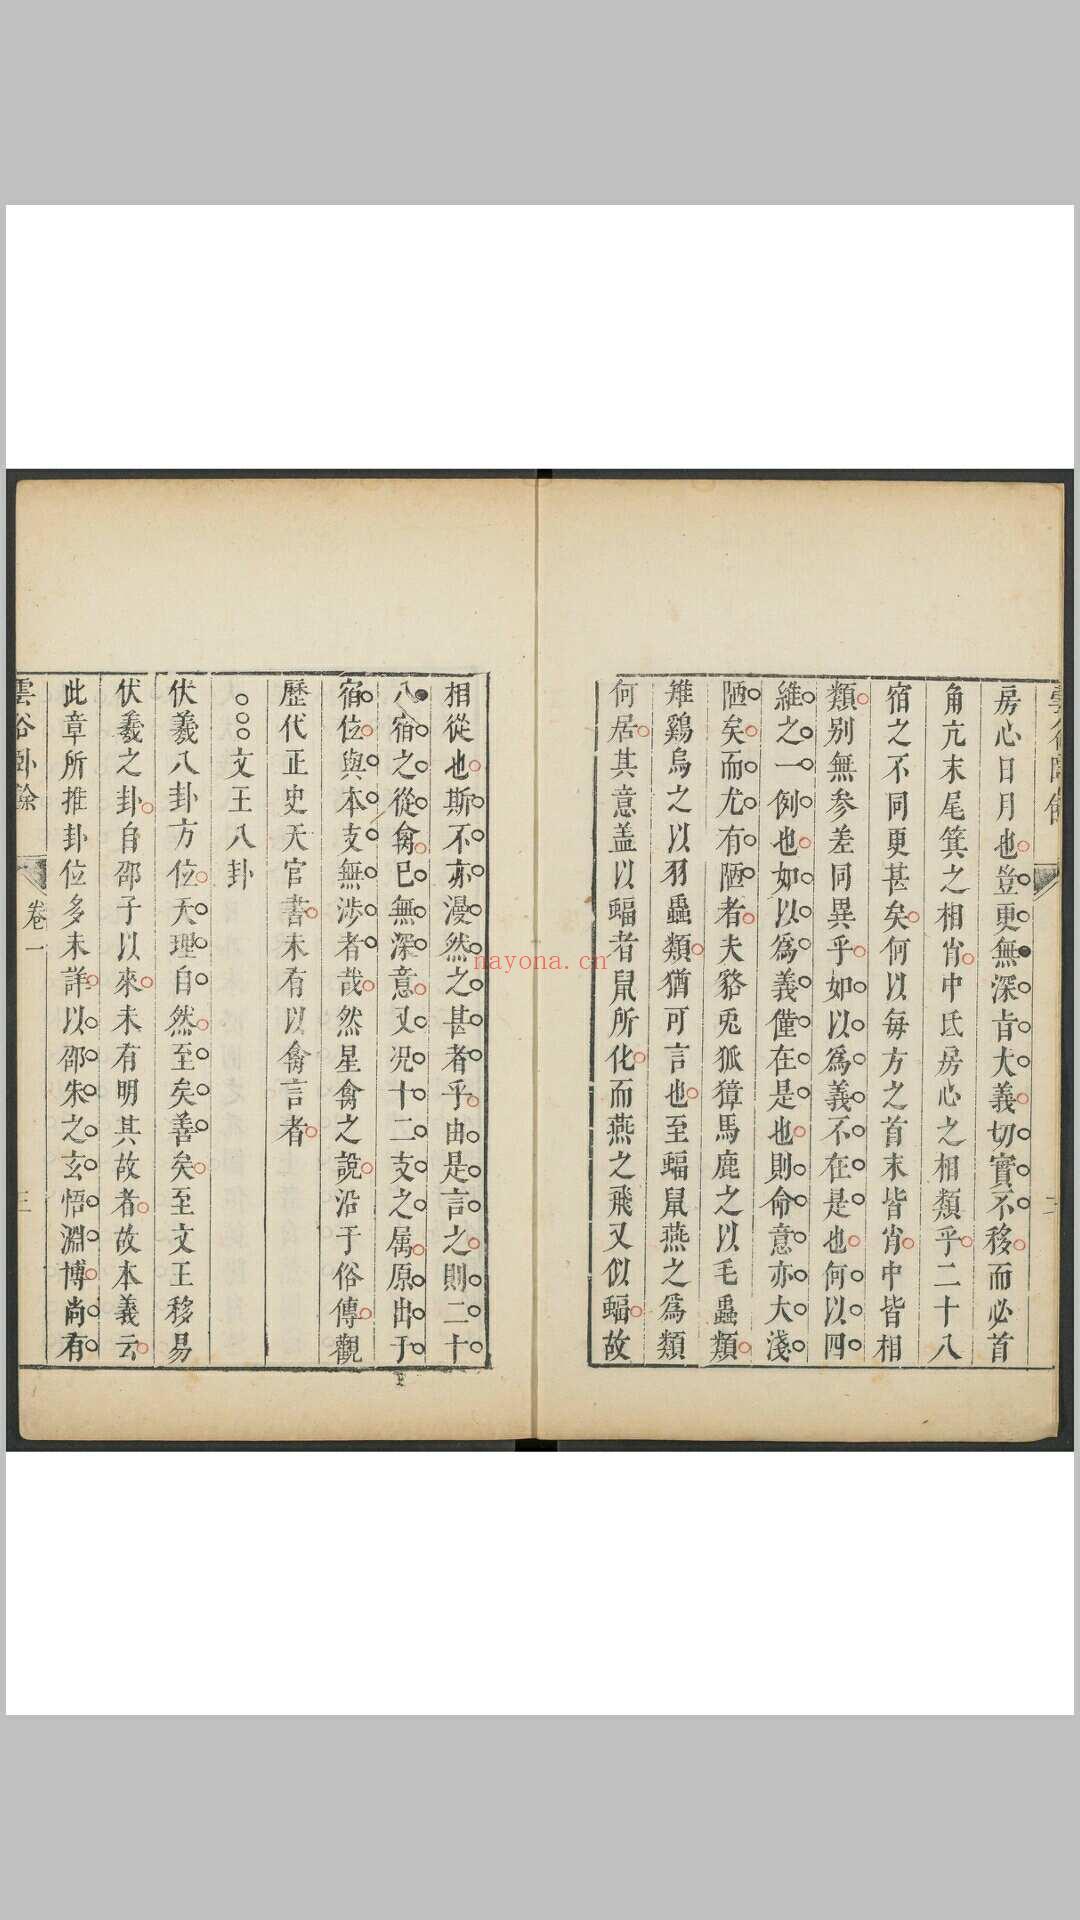 房心日月也豈更無深旨大義切實不移而必首
角亢末尾箕之相肖中氐房心之相類乎二十八
宿之不同更甚矣何以每方之首末皆肖中皆相
類別無參差同異乎如以爲義不在是也何以四
維之一例也如以爲義僅在是也則命意亦大淺
陋矣而尤有陋者夫貉兎狐獐馬鹿之以毛蟲類
雉鷄烏之以羽蟲類猶可言也至蝠鼠燕之爲類
何居其意盖以蝠者鼠所化而燕之飛又似蝠故
相從也斯不亦漫然之甚者乎由是言之則二十
八宿之從禽已無深意又况十二支之属原出于
宿位與本支無涉者哉然星禽之說沿于俗傳觀
歷代正史天官書未有以禽言者
○○○文王八卦
伏羲八卦方位天理自然至矣善矣至文王移易
伏羲之卦自邵子以來未有明其故者故本義云
此章所推卦位多未詳以邵朱之玄悟淵博尚有
雲谷臥餘 卷一 三
nayona.cn